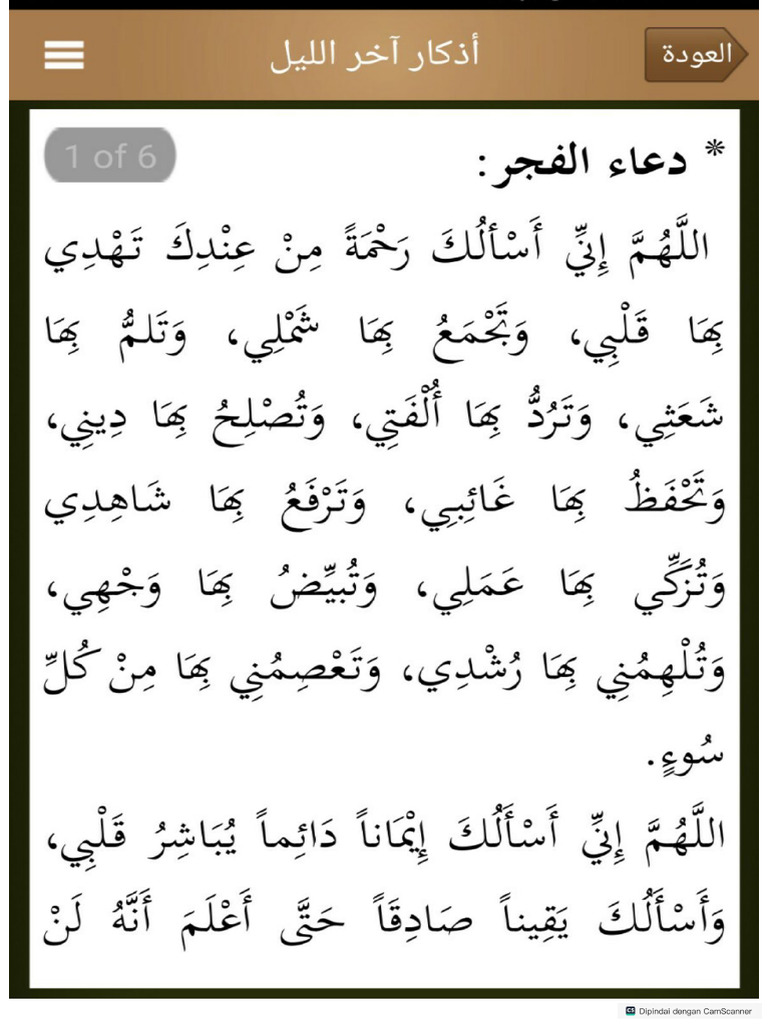 العودة
أذكار آخر الليل
1 of 6
* دعاء الفجر:
اللَّهُمَّ إِنِّي أَسْأَلُكَ رَحْمَةً مِنْ عِنْدِكَ تَهْدِي
بِهَا قَلْبِي، وَتَجْمَعُ بِهَا شَمْلِي، وَتَلمُّ بِهَا
شَعَثِي، وَتَرُدُّ بِهَا أُلْفَتِي، وَتُصْلِحُ بِهَا دِينِي،
وَتَحْفَظُ بِهَا غَائِبِي، وَتَرْفَعُ بِهَا شَاهِدِي
وَتُزَكِّي بِهَا عَمَلِي، وَتُبيِّضُ بِهَا وَجْهِي،
وَتُلْهِمُنِي بِهَا رُشْدِي، وَتَعْصِمُنِي بِهَا مِنْ كُلِّ
سُوءٍ.
اللَّهُمَّ إِنِّي أَسْأَلُكَ إِيْمَاناً دَائِماً يُبَاشِرُ قَلْبِي،
وَأَسْأَلُكَ يَقِيناً صَادِقَاً حَتَّى أَعْلَمَ أَنَّهُ لَنْ
CS Dipindai dengan CamScanner